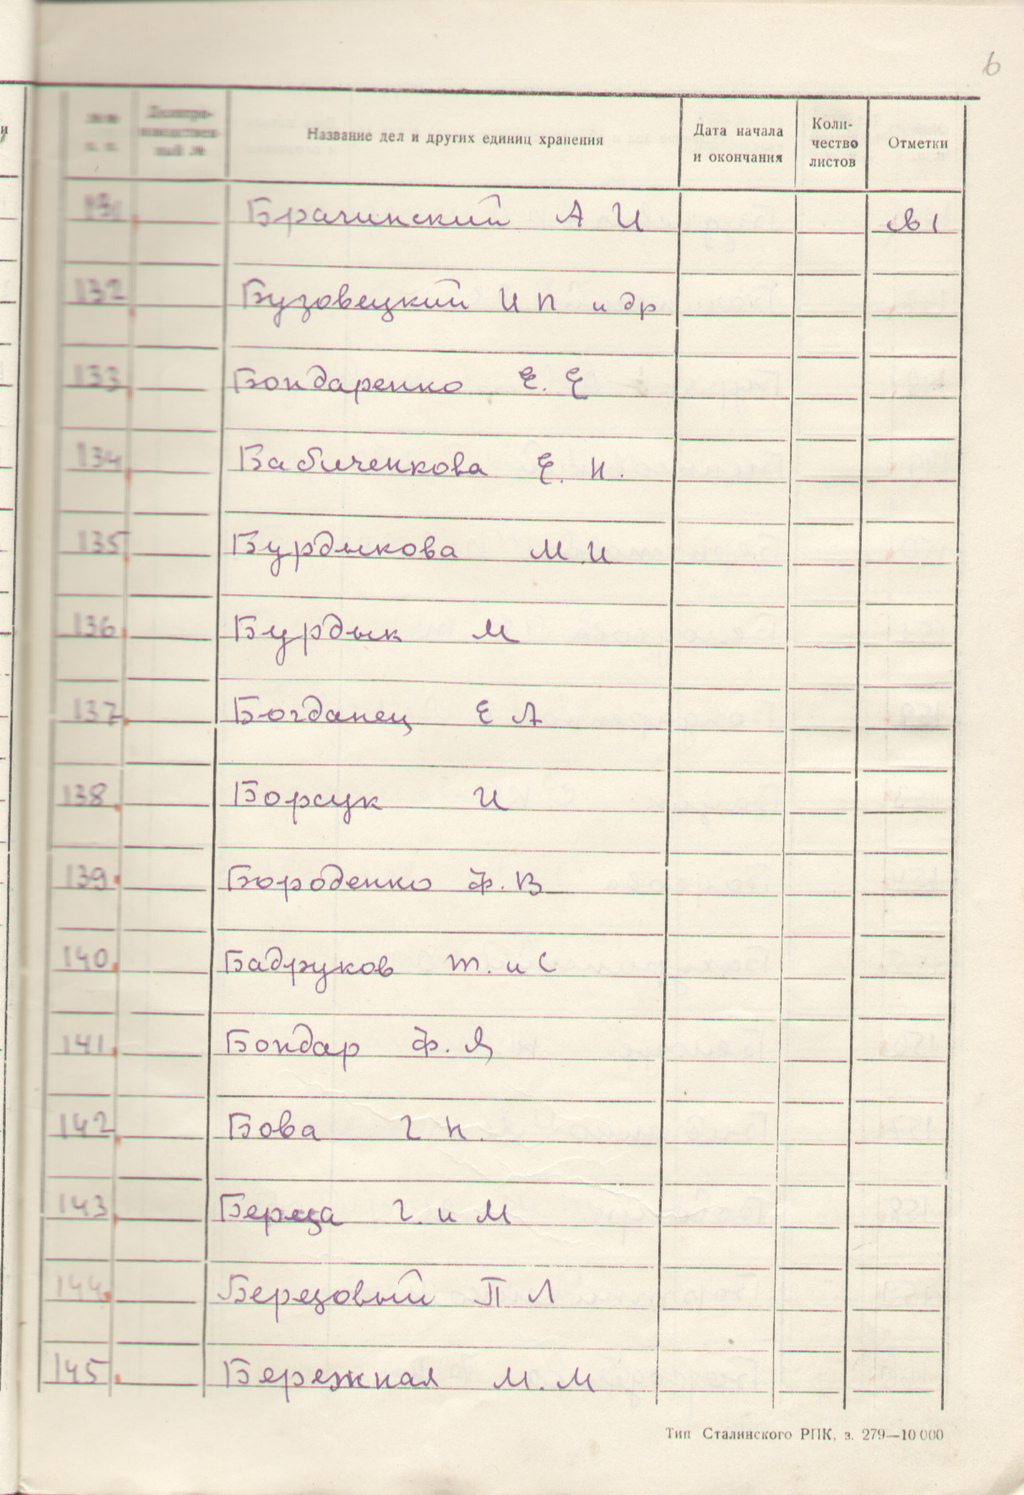 6
№№ п. п. Делопро-изводствен-ный № Название дел и других единиц хранения Дата начала и окончания Коли-чество листов Отметки
131 Брачинский А И
132 Бузовецкий И П и др
133 Бондаренко Е. Е
134 Бабиченкова Е. Н.
135 Бурдыкова М И
136 Бурдык М
137 Богданец Е А
138 Борсук И
139 Бороденко Ф. В
140 Бадруков Т. и С
141 Бондар Ф. Я
142 Бова Г Н.
143 Г. и М
144 Березовый П Л
145 Бережная М. М
Тип Сталинского РПК, з. 279—10 000